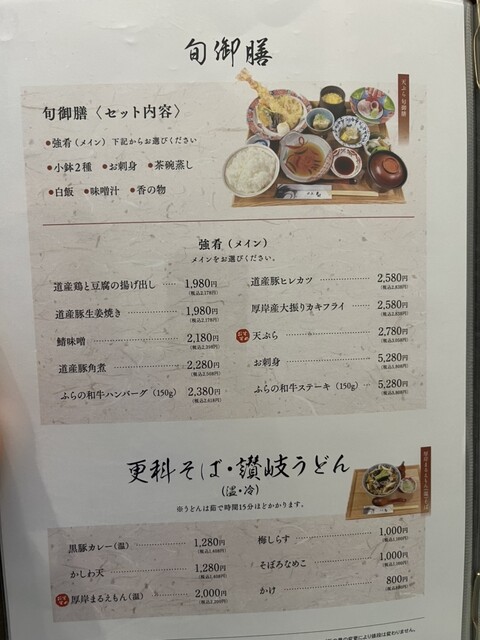 旬御膳
天ぷら旬御膳
旬御膳〈セット内容〉
●強肴(メイン) 下記からお選びください
●小鉢2種 ●お刺身 ●茶碗蒸し
●白飯 ●味噌汁 ●香の物
強肴(メイン)
メインをお選びください。
道産鶏と豆腐の揚げ出し 1,980円
(税込2,178円)
道産豚生姜焼き 1,980円
(税込2,178円)
鯖味噌 2,180円
(税込2,398円)
道産豚角煮 2,280円
(税込2,508円)
ふらの和牛ハンバーグ(150g) 2,380円
(税込2,618円)
道産豚ヒレカツ 2,580円
(税込2,838円)
厚岸産大振りカキフライ 2,580円
(税込2,838円)
おすすめ 天ぷら 2,780円
(税込3,058円)
お刺身 5,280円
(税込5,808円)
ふらの和牛ステーキ(150g) 5,280円
(税込5,808円)
更科そば・讃岐うどん
(温・冷)
※うどんは茹で時間15分ほどかかります。
厚岸まるえもん(温)そば
黒豚カレー(温) 1,280円
(税込1,408円)
かしわ天 1,280円
(税込1,408円)
おすすめ 厚岸まるえもん(温) 2,000円
(税込2,200円)
梅しらす 1,000円
(税込1,100円)
そぼろなめこ 1,000円
(税込1,100円)
かけ 800円
(税込880円)
の変更により価格は変わりません。